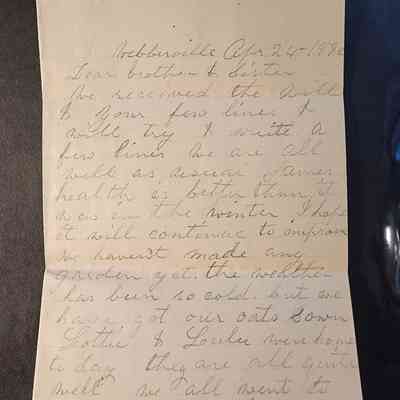 Webberville Apr. 24 -
Dear brother & Sister
We received the
& your few lines &
will try & write a
few lines we are all
well as usual
health is better than it
was in the winter I hope
it will continue to improve
we havent made any
garden yet. the weather
has been so cold. but we
have got our oats sown
Lottie & Loulu were home
to day they are all quite
well we all went to